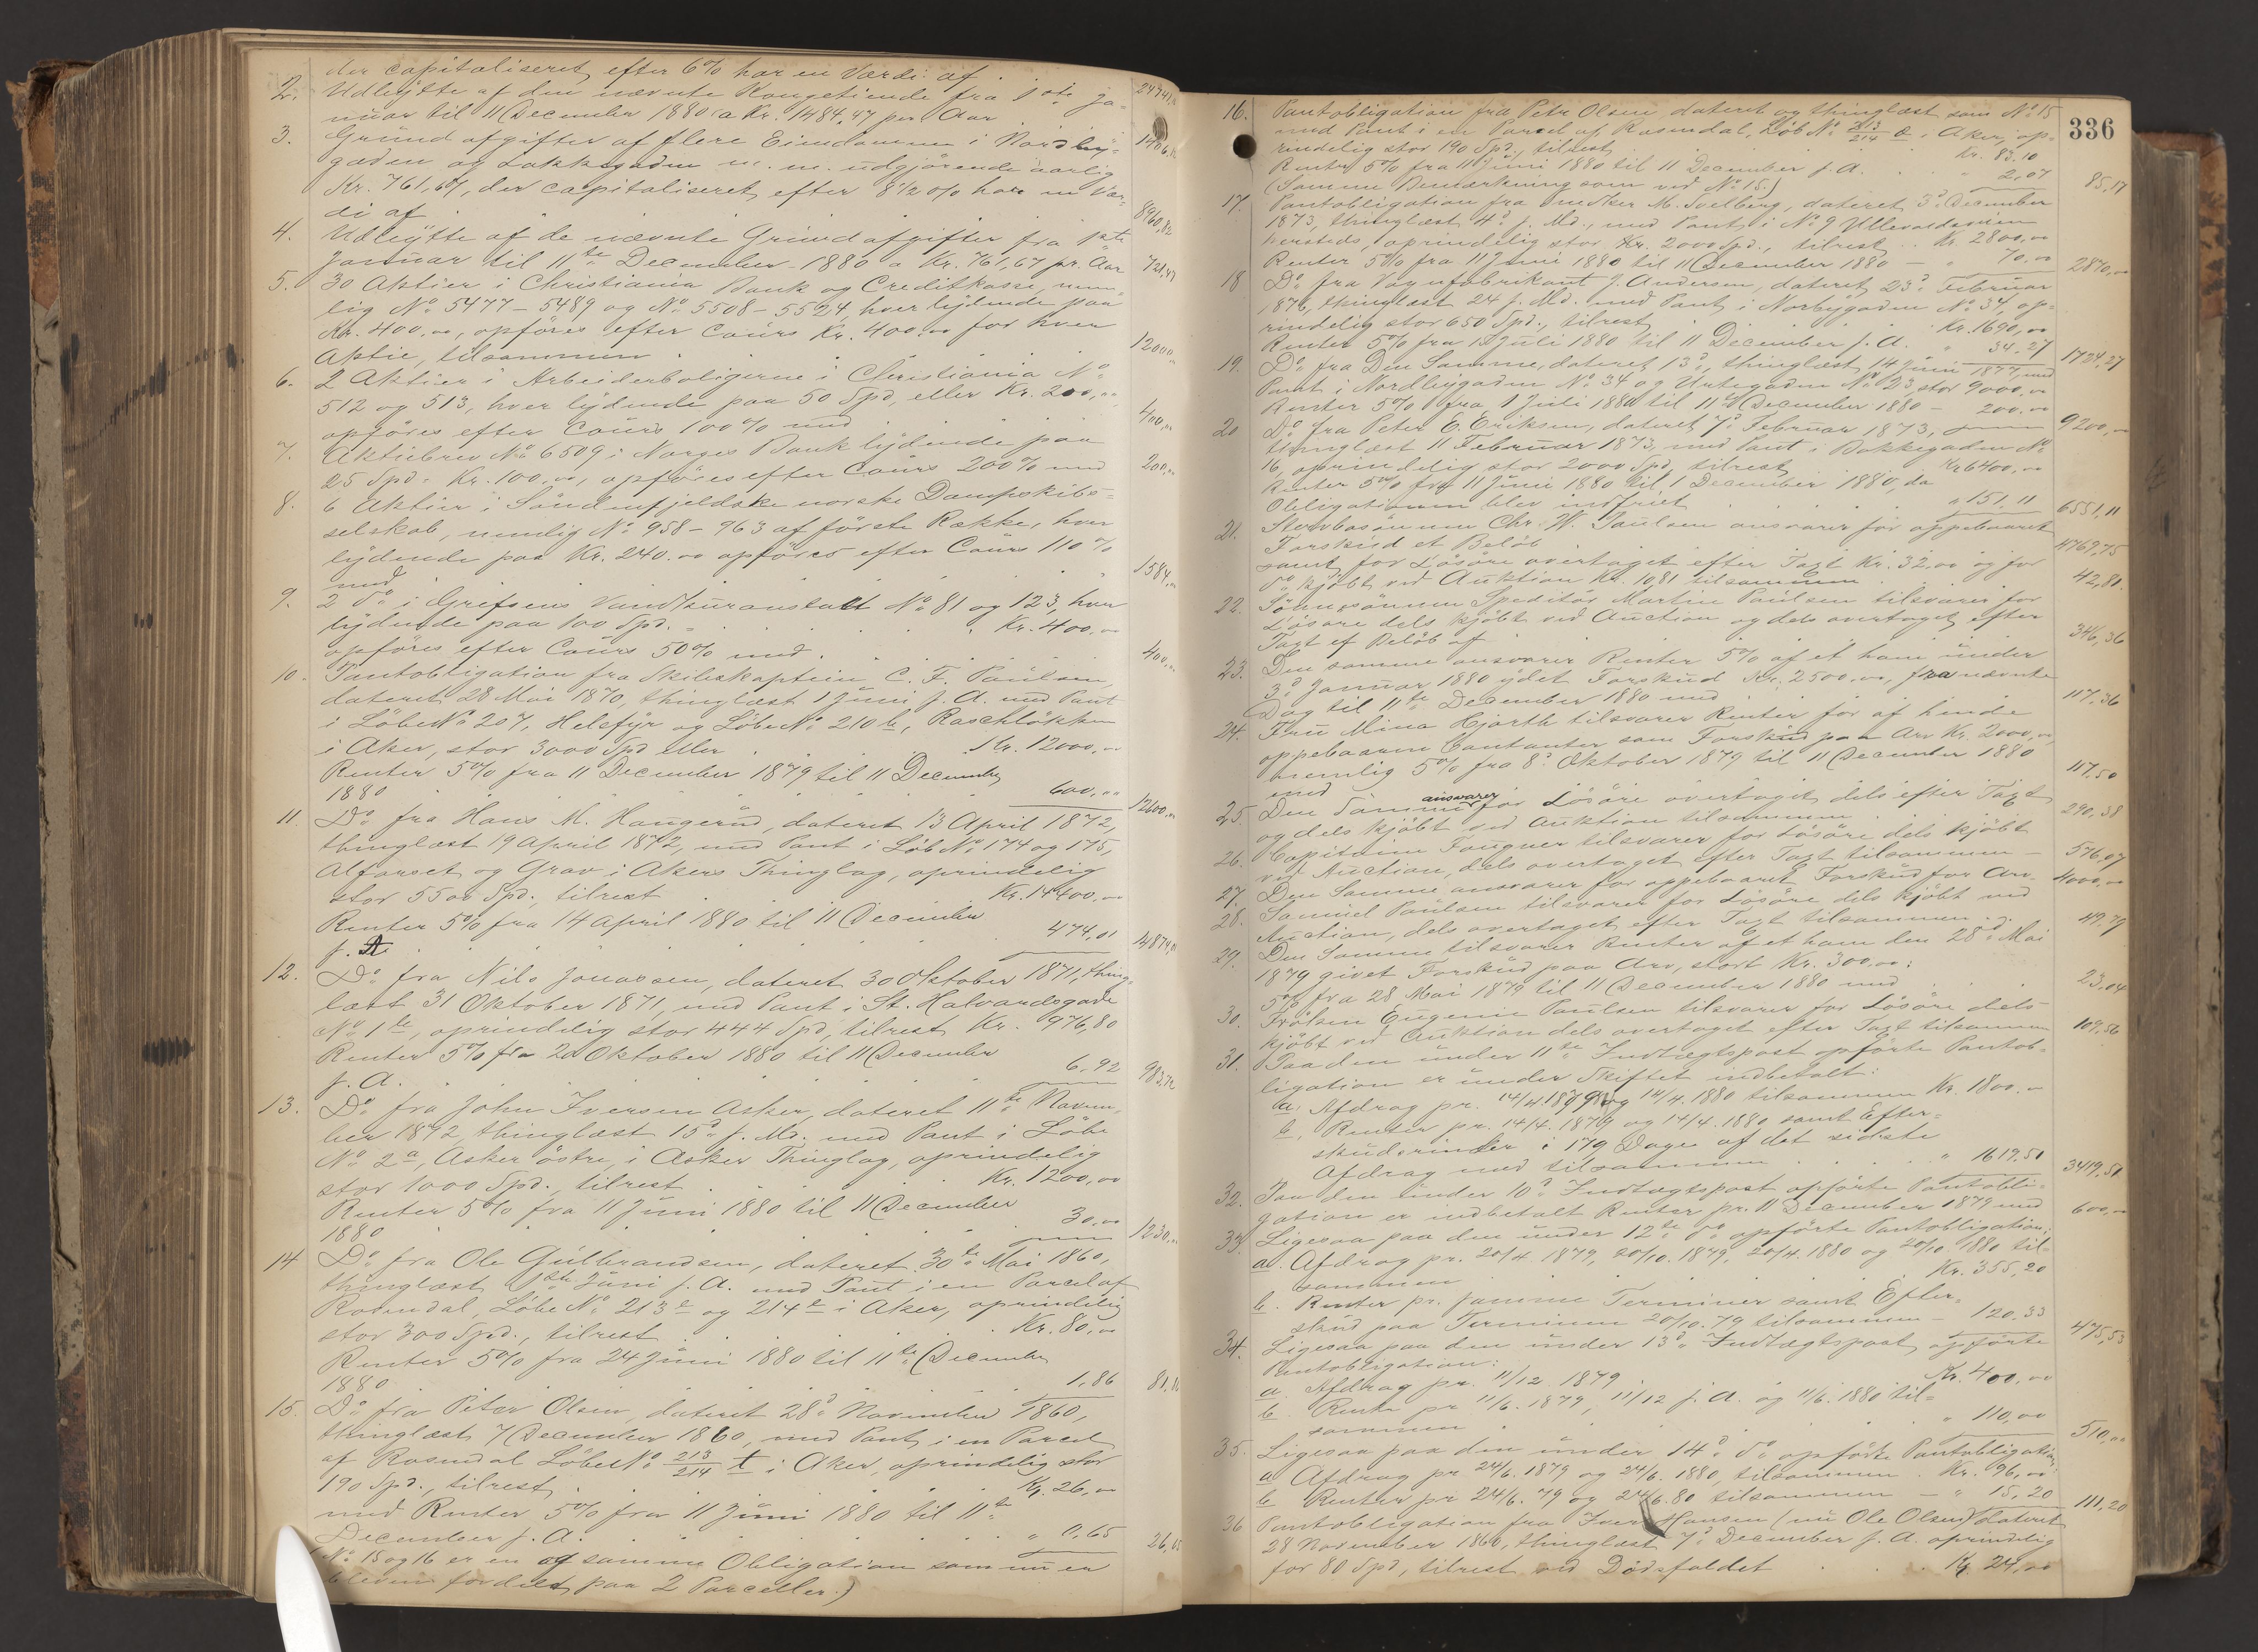 der capitaliseret efter 6% har en Værdi af
24741,
2. Udbytte af den nævnte Kongetiende fra 1ste Ja-
nuar til 11 December 1880 a Kr. 1484,47 per Aar
3. Grundafgifter af flere Eiendomme i Nordby-
gaden og Lakkegaden m. m. udgjørende aarlig
Kr. 761,67, der capitaliseret efter 8 1/2 % har en Vær-
di af 8960,82
4. Udbytte af de nævnte Grundafgifter fra 1ste
Januar til 11te December 1880 a Kr. 761,67 pr. Aar 721,47
5. 30 Aktier i Christiania Bank og Creditkasse, nem-
lig No 5477 – 5489 og No 5508 – 5524, hver lydende paa
Kr. 400,00, opføres efter Cours Kr. 400,00 for hver
Aktie, tilsammen 12000,
6. 2 Aktier i Arbeiderboligerne i Christiania No
512 og 513, hver lydende paa 50 Spd, eller Kr. 200,00
opføres efter Cours 100% med 400,
7. Aktiebrev No 6509 i Norges Bank lydende paa
25 Spd. Kr. 100,00, opføres efter Cours 200% med 200,
8. 6 Aktier i Søndenfjeldske norske Dampskibs-
selskab, nemlig No 958 – 963 af første Række, hver
lydende paa Kr. 240,00 opføres efter Cours 110%
med 1584,
9. 2 Do i Grefsens Vandkuranstalt No 81 og 123, hver
lydende paa 100 Spd. Kr. 400,00
opføres efter Cours 50% med 400,
10. Pantobligation fra Skibskaptein C. F. Paulsen,
dateret 28 Mai 1870, thinglæst 1 Juni s. A. med Pant
i Løbe No 207, Helsfyr og Løbe No 210 b, Raschløkken
i Aker, stor 3000 Spd eller Kr. 12000,
Renter 5% fra 11 December 1879 til 11 December
1880 600,00 12600,
11. Do fra Hans M. Haugerud, dateret 13 April 1872,
thinglæst 19 April 1872, med Pant i Løb No 174 og 175,
Alfarset og Grav i Akers Thinglag, oprindelig
stor 5500 Spd. tilrest Kr. 14400,
Renter 5% fra 14 April 1880 til 11 December
s. A. 474,01 14874,01
12. Do fra Nils Jonassen, dateret 30 Oktober 1871, thing-
læst 31 Oktober 1871, med Pant i St. Halvardsgade
No 1 , oprindelig stor 444 Spd, tilrest Kr. 976,80
Renter 5% fra 20 Oktober 1880 til 11 December
s. A. 6,92 983,72
13. Do fra John Iversen Asker, dateret 11te Novem-
ber 1872, thinglæst 15de s. Md. med Pant i Løbe
No 2a, Asker østre, i Asker Thinglag, oprindelig
stor 1000 Spd., tilrest Kr. 1200,00
Renter 5% fra 11 Juni 1880 til 11 December
1880 30,00 1230,
14 Do fra Ole Gulbrandsen, dateret 30te Mai 1860,
thinglæst Juni s. A. med Pant i en Parcel af
Rosendal, Løbe No 213 og 214 i Aker, oprindelig
stor 300 Spd., tilrest Kr. 80,00
Renter 5% fra 24 Juni 1880 til 11te December
1880 1,86 81,86
15. Do fra Peter Olsen, dateret 28de November 1860,
thinglæst 7 December 1860, med Pant i en Parcel
af Rosendal Løbe No 213/214 t i Aker, oprindelig stor
190 Spd., tilrest Kr. 26,00
med Renter 5% fra 11 Juni 1880 til 11te
December s. A. " 0,65 26,65
(No 15 og 16 er en og samme Obligation som nu er
bleven fordelt paa 2 Parceller.)
336
16. Pantobligation fra Petr Olsen, dateret og thinglæst som No 15
med Pant i en Parcel af Rosendal, Løb No 213/214 , Aker, op-
rindelig stor 190 Spd., tilrest Kr. 83.10
Renter 5% fra 11 Juni 1880 til 11 December s. A. " 2,07 85,17
(Samme Bemærkning som ved No 15.)
17. Pantobligation fra Snedker M. Tvetberg, dateret 3de December
1873, thinglæst 4de s. Md., med Pant i No 9 Ullevoldsveien
, oprindelig stor Kr. 2000 Spd., tilrest Kr. 2800,00
Renter 5% fra 11 Juni 1880 til 11 December 1880 — " 70,00 2870,
18 Do fra Vognfabrikant J. Andersen, dateret 23de Februar
1876, thinglæst 24 s. Md. med Pant i Norbygaden No 34, op-
rindelig stor 650 Spd., tilrest Kr. 1690,00
Renter 5% fra 15 Juli 1880 til 11 December s. A. " 34,27 1724,27
19. Do fra Den Samme, dateret 13de, thinglæst 14 Juni 1877, med
Pant i Nordbygaden No 34 og Urtegaden No 23, stor 9000,00
Renter 5% fra 1 Juli 1880 til 11te December 1880 — 200,00 9200,
20 Do fra Peter E. Eriksen, dateret 7de Februar 1873,
thinglæst 11 Februar 1873, med Pant i Bakkegaden No
16, oprindelig stor 2000 Spd, tilrest Kr 6400,00
Renter 5% fra 11 Juni 1880 til 1 December 1880, da
Obligationen blev indfriet " 151,11 6551,11
21. Chr. W. Paulsen ansvarer for oppebaaret
Forskud et Beløb 4769,75
samt for Løsøre overtaget efter Taxt Kr. 32,00 og for
do kjøbt ved Auktion Kr. 10,81 tilsammen 42,81
22. Speditør Martin Paulsen tilsvarer for
Løsøre dels kjøbt ved Auction og dels overtaget efter
Taxt et Beløb af 346,36
23. Den samme ansvarer Renter 5% af et ham under
3de Januar 1880 ydet Forskud Kr. 2500,00, fra nævnte
Dag til 11te December 1880 med 117,36
24. Fru Mina Hjorth tilsvarer Renter for af hende
oppebaaren Contanter som Forskud paa Arv Kr. 2000,00,
nemlig 5% fra 8de Oktober 1879 til 11 December 1880
med 117,50
25. Den Samme ansvarer for Løsøre overtaget dels efter Taxt
og dels kjøbt ved Auktion tilsammen 290,38
26. Capitaine Fougner tilsvarer for Løsøre dels kjøbt
ved Auction, dels overtaget efter Taxt tilsammen — 576,07
27. Den Samme ansvarer for oppebaaret Forskud for Arv 4000,
28. Samuel Paulsen tilsvarer for Løsøre dels kjøbt ved
Auction, dels overtaget efter Taxt tilsammen 49,79
29. Den Samme tilsvarer Renter af et ham den 28de Mai
1879 givet Forskud paa Arv, stort Kr. 300,00:
5% fra 28 Mai 1879 til 11 December 1880 med 23,04
30. Frøken Eugenie Paulsen tilsvarer for Løsøre dels
kjøbt ved Auktion dels overtaget efter Taxt tilsammen 109,56
31. Paa den under 11te Indtægtspost opførte Pantob-
ligation er under Skiftet indbetalt:
a, Afdrag pr. 14/4 1879 og 14/4. 1880 tilsammen Kr. 1800,
b, Renter pr. 14/4. 1879 og 14/4. 1880 samt Efter-
skudsrenter i 179 Dage af det sidste
Afdrag med tilsammen " 1619,51 3419,51
32. Paa den under 10de Indtægtspost opførte Pantobli-
gation er indbetalt Renter pr. 11 December 1879 med 600,
33. Ligesaa paa den under 12te do opførte Pantobligation:
a. Afdrag pr. 20/4 1879, 20/10. 1879, 20/4. 1880 og 20/10. 1880 til-
sammen Kr. 355,20
b. Renter pr. samme Terminer samt Efter-
skud paa Terminen 20/10. 79 tilsammen — 120,33 475,53
34. Ligesaa paa den under 13de Indtægtspost opførte
Pantobligation:
a Afdrag pr. 11/12 1879 Kr. 400,00
b. Renter pr 11/6. 1879, 11/12 s. A. og 11/6. 1880 til-
sammen " 110,00 510,00
35. Ligesaa paa den under 14de do opførte Pantobligation:
a Afdrag pr 24/6. 1879 og 24/6. 1880, tilsammen Kr. 96,00
b Renter pr 24/6. 79 og 24/6. 80 tilsammen — " 15,20 111,20
36 Pantobligation fra Iver Hansen (nu Ole Olsen) dateret
28 November 1860, thinglæst 7de December s. A. oprindelig
for 80 Spd, tilrest ved Dødsfaldet Kr 24,00